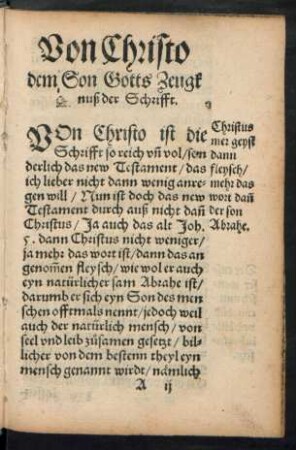 Von Christo
dem Son Gotts Zeugk
nuß der Schrifft.
VOn Christo ist die
Schrifft so reich vñ vol/son
derlich das new Testament/das
ich lieber nicht dann wenig anre-
gen will/Nun ist doch das new
Testament durch auß nicht dañ
Christus/Ja auch das alt Joh.
5. dann Christus nicht weniger/
ja mehr das wort ist/dann das an
genom̃en fleysch/wie wol er auch
eyn natürlicher sam Abrahe ist/
darumb er sich eyn Son des men
schen offtmals nennt/jedoch weil
auch der natürlich mensch/von
seel vnd leib zůsamen gesetzt/bil-
licher von dem bestenn theyl eyn
mensch genannt wirdt/nämlich
A ij
Christus
mer geyst
dann
fleysch/
mehr das
wort dañ
der son
Abrahe.